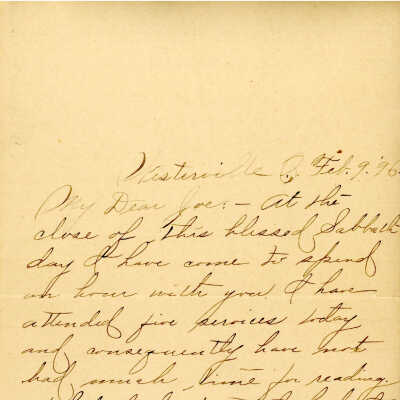 Westerville O. Feb. 9. '96.
My Dear Joe:- At the
close of this blessed Sabbath
day I have come to spend
an hour with you I have
attended five services today
and consequently have not
had much time for reading.